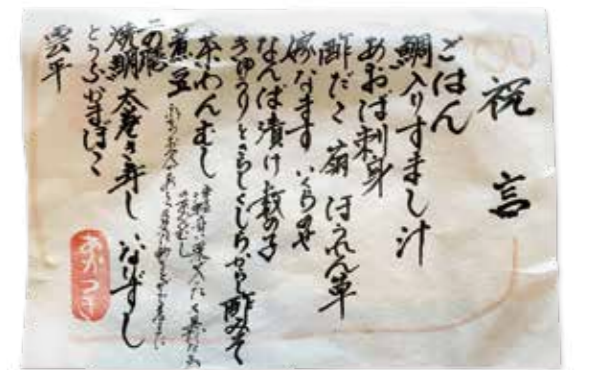 祝言
ごはん
鯛入りすまし汁
あおば刺身
酢だこ 菊 ほうれん草
嫁なます いくらのせ
なんば漬け 数の子
きゅうりとさらしくじらからし酢みそ
茶わんむし
煮豆
二の膳
焼鯛 太巻き寿し いなりずし
とうふかまぼこ
雲平
あかつき